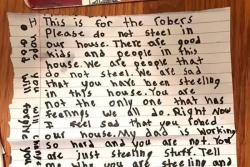 This is for the robers
Please do not steel in
our house. There are good
kids and people in this
house. We are people that
do not steel. We are sad
that you have been steeling
in this house. You are
not the only one that has
feelings we all do. Right Now
I feel sad that you robed
our house. My dad is working
so hard and you are not. You
are just steeling stuff. Tell
me why you are steeling and
you will